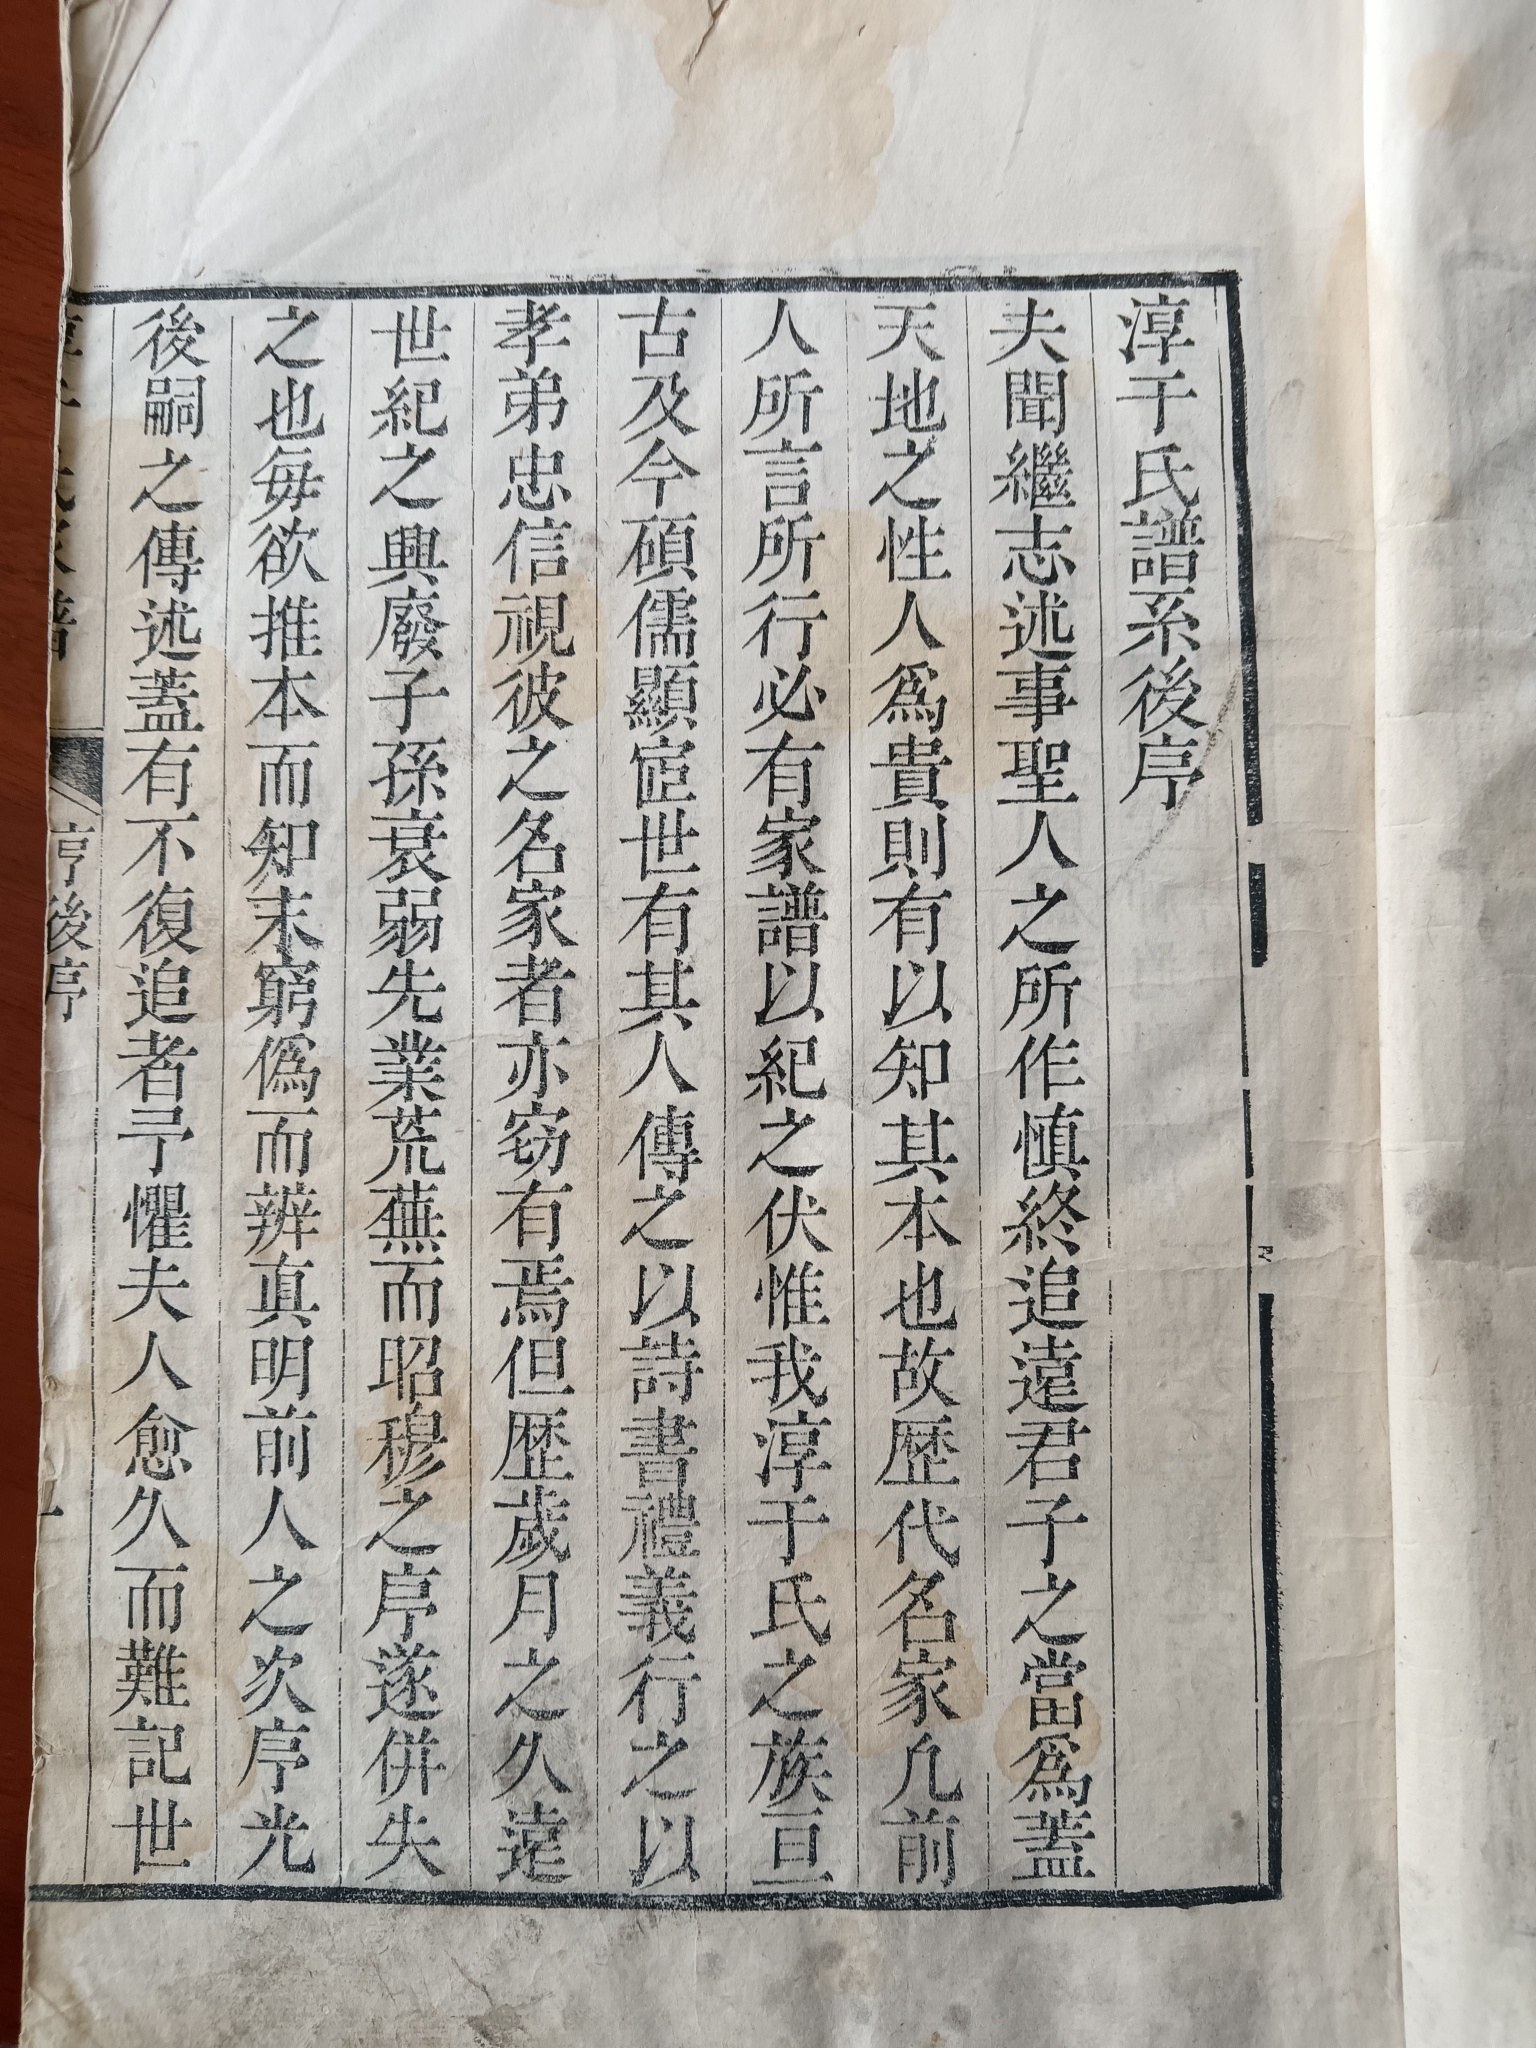 淳于氏譜系後序
夫聞繼志述事聖人之所作慎終追遠君子之當爲蓋
天地之性人爲貴則有以知其本也故歷代名家凡前
人所言所行必有家譜以紀之伏惟我淳于氏之族亘
古及今碩儒顯宦世有其人傳之以詩書禮義行之以
孝弟忠信視彼之名家者亦窃有焉但歴歲月之久遠
世紀之興廢子孫衰弱先業荒蕪而昭穆之序遂併失
之也毎欲推本而知末窮僞而辨真明前人之次序光
後嗣之傳述蓋有不復追者予懼夫人愈久而難記世
亨後序